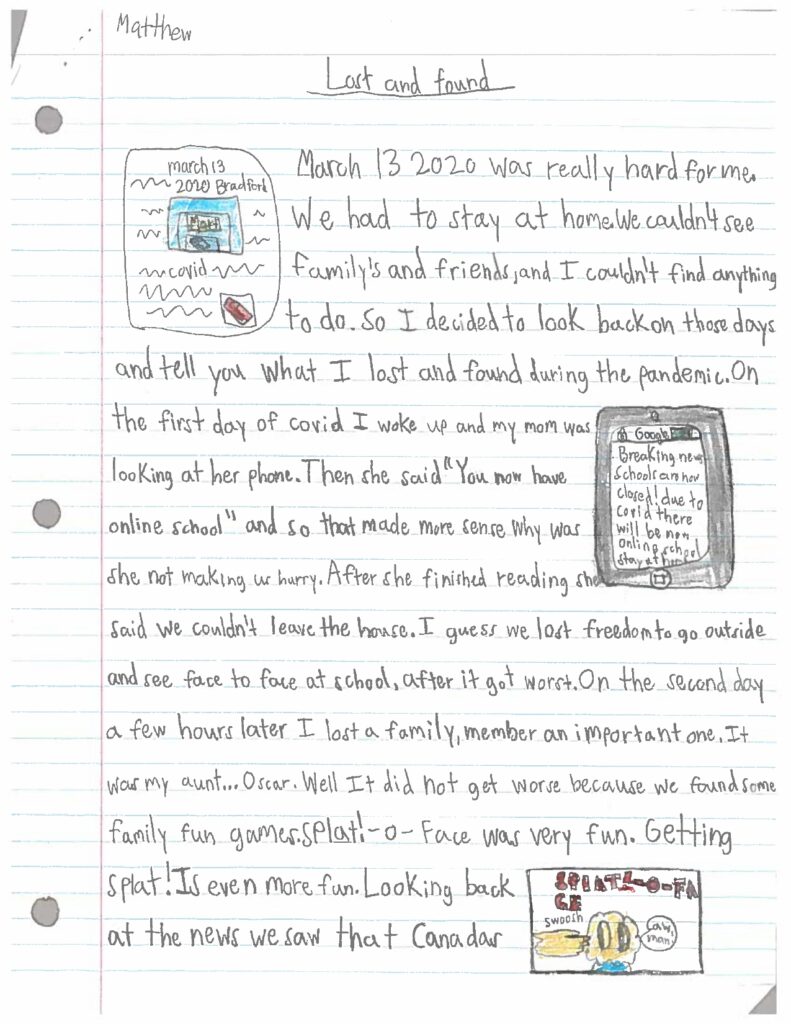 Matthew
Lost and found
march 13
2020 Bradford
Matt
covid
March 13 2020 was really hard for me.
We had to stay at home. We couldn't see
family's and friends, and I couldn't find anything
to do. So I decided to look back on those days
and tell you what I lost and found during the pandemic. On
the first day of covid I woke up and my mom was
looking at her phone. Then she said "You now have
online school" and so that made more sense why was
she not making us hurry. After she finished reading she
said we couldn't leave the house. I guess we lost freedom to go outside
and see face to face at school, after it got worst. On the second day
a few hours later I lost a family, member an important one. It
was my aunt... Oscar. Well It did not get worse because we found some
family fun games. Splat!-o- Face was very fun. Getting
splat! Is even more fun. Looking back
at the news we saw that Canadas
Google
Breaking news
Schools are now
closed! due to
covid there
will be now
online school
stay at home
SPLAT!-O-FA
CE
swoosh
man!